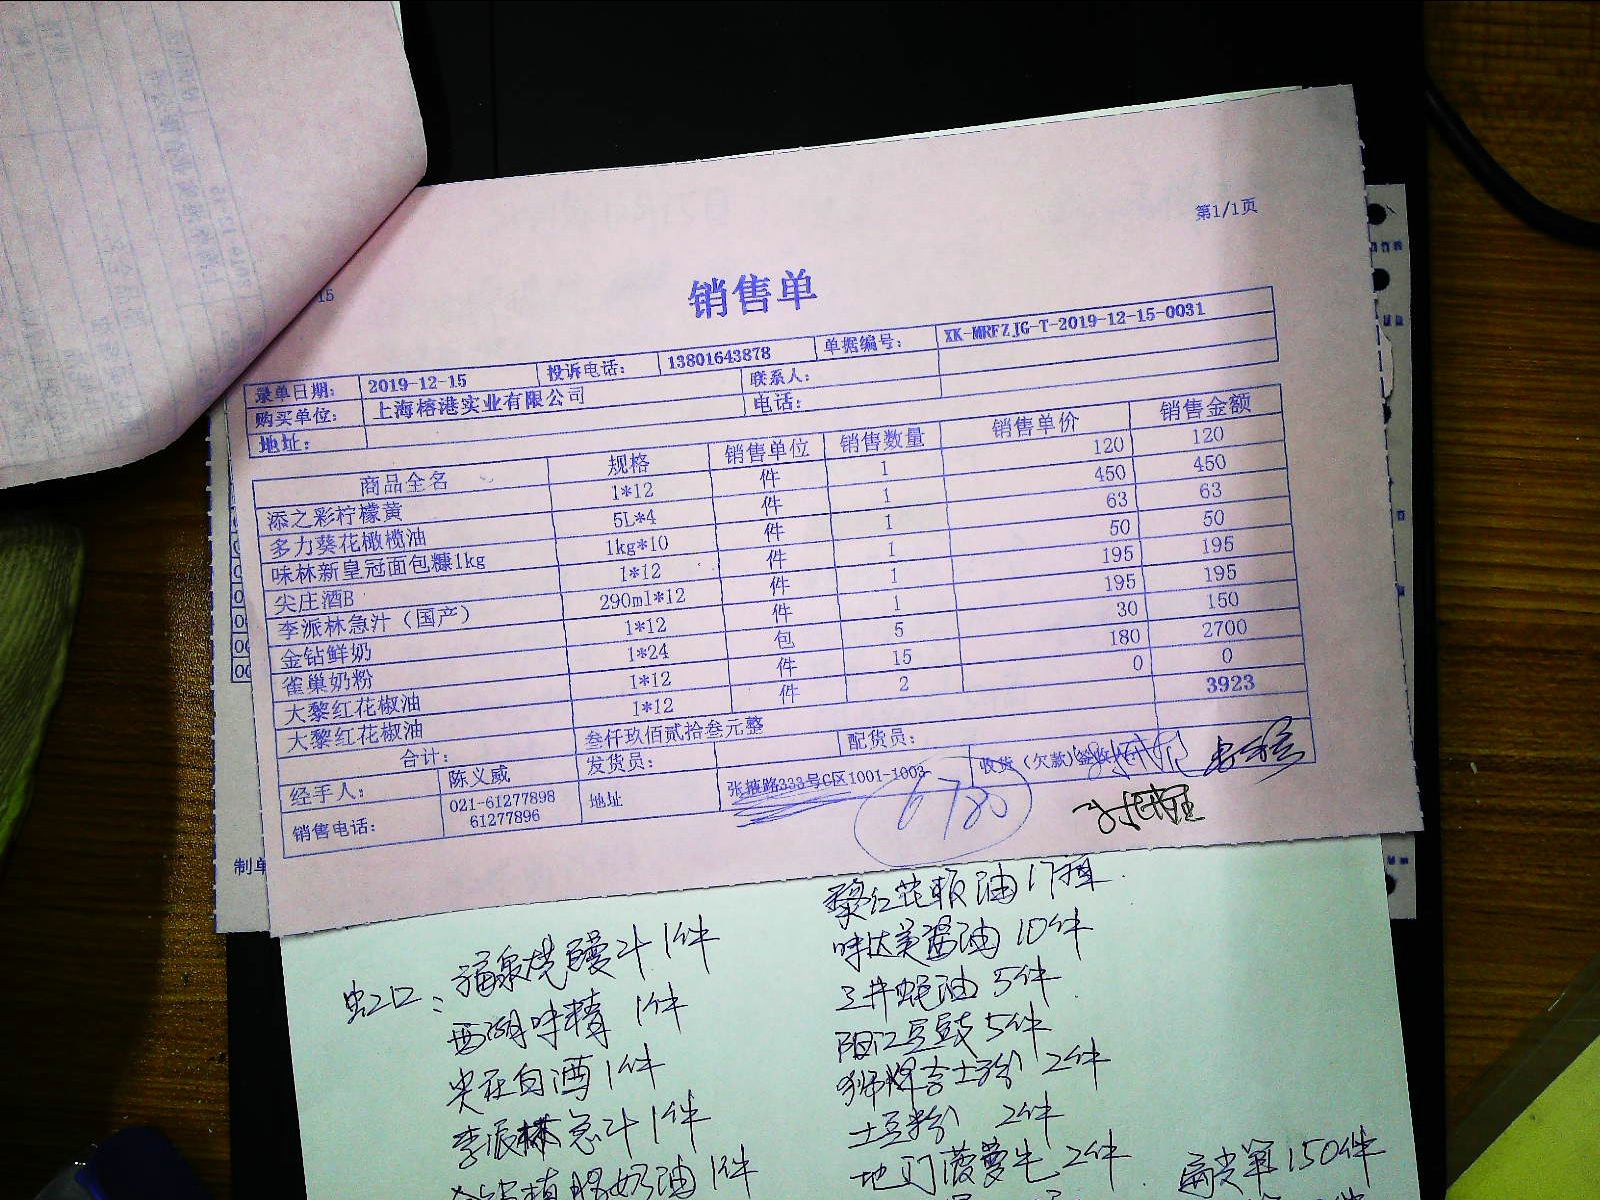 第1/1页
15
销售单
录单日期: 2019-12-15 投诉电话: 13801643878 单据编号: XK-MRFZJG-T-2019-12-15-0031
购买单位: 上海榕港实业有限公司 联系人:
地址: 电话:
商品全名 规格 销售单位 销售数量 销售单价 销售金额
添之彩柠檬黄 1*12 件 1 120 120
多力葵花橄榄油 5L*4 件 1 450 450
味林新皇冠面包糠1kg 1kg*10 件 1 63 63
尖庄酒B 1*12 件 1 50 50
李派林急汁（国产） 290ml*12 件 1 195 195
金钻鲜奶 1*12 件 1 195 195
雀巢奶粉 1*24 包 5 30 150
大黎红花椒油 1*12 件 15 180 2700
大黎红花椒油 1*12 件 2 0 0
合计: 叁仟玖佰贰拾叁元整 3923
经手人: 陈义威 发货员: 配货员:
销售电话: 021-61277898 61277896 地址 张掖路333号C区1001-1003 收货（欠款)签收
6780
制单
黎红花椒油17箱
虫口: 1件 味达美酱油 10件
西湖味精 1件 三井蚝油 5件
尖庄白酒 1件 阳江豆豉 5件
李派林急汁 1件 狮牌吉士粉 2件
土豆粉 2件
奶油 1件 地门菠萝 2件 150件